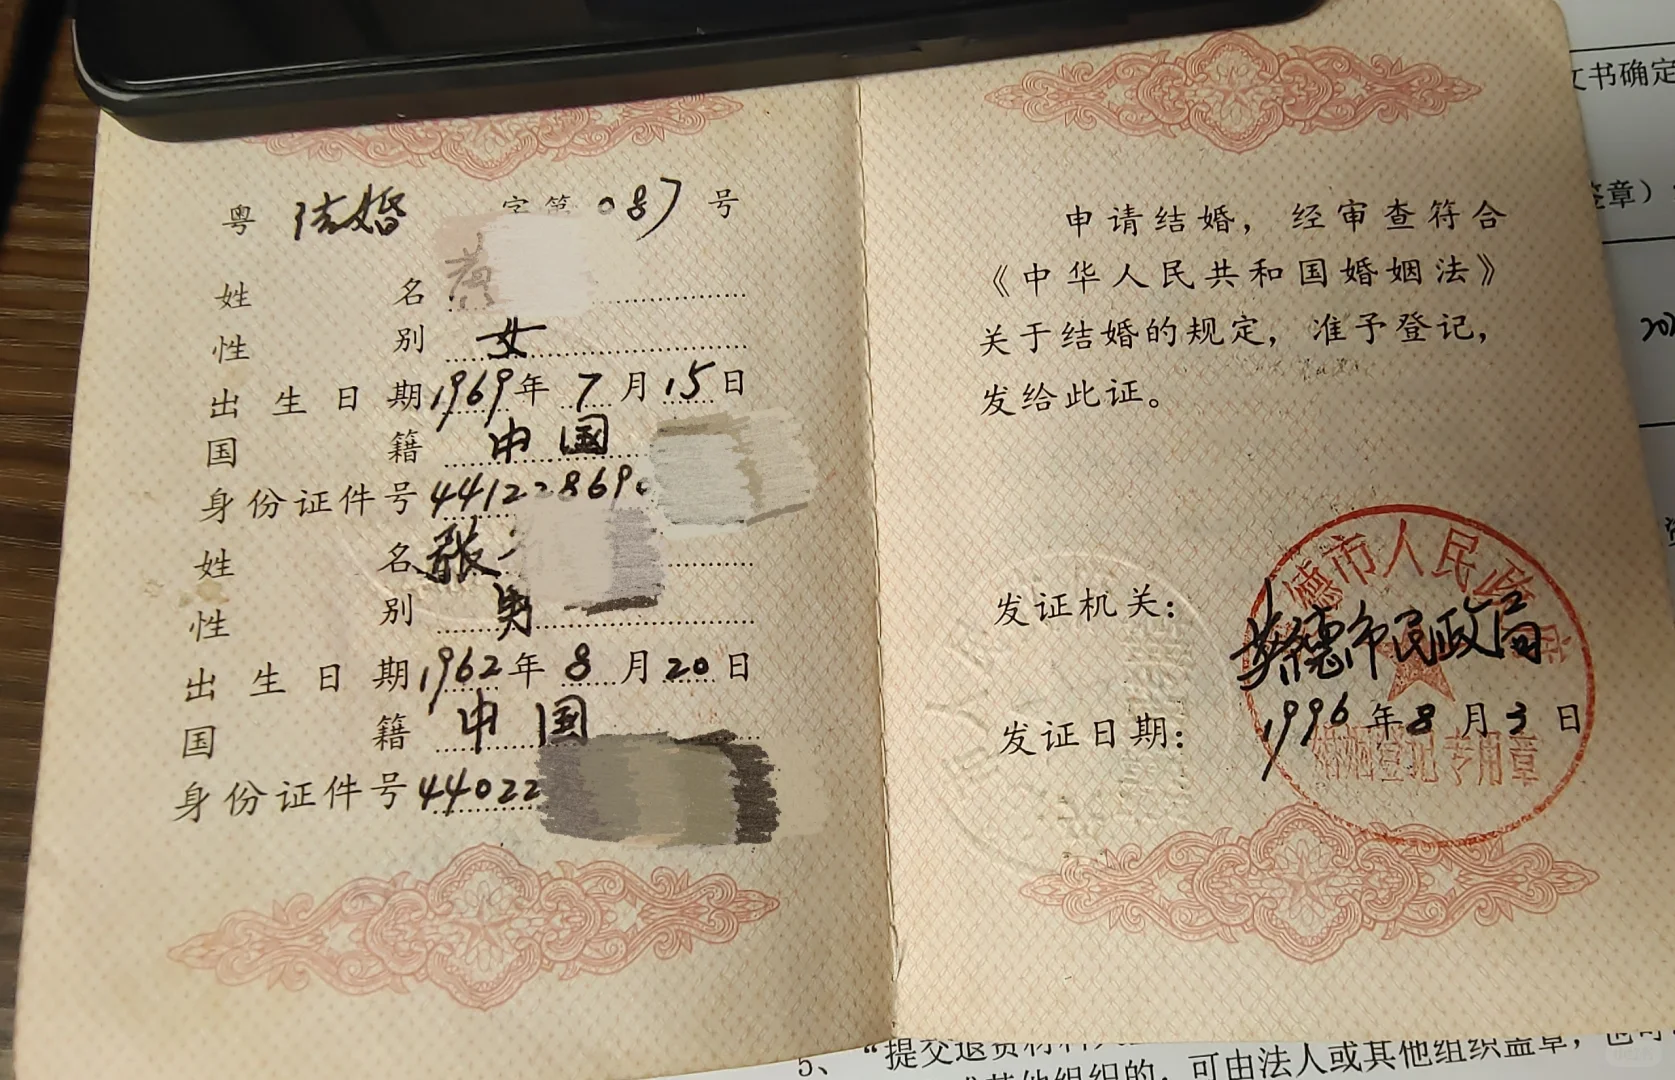 粤 结婚 字第 087 号
姓 名
性 别 女
出生日期 1969年 7月 15日
国 籍 中国
身份证件号 441228690
姓 名 张
性 别 男
出生日期 1962年 8月 20日
国 籍 中国
身份证件号 44022
申请结婚，经审查符合
《中华人民共和国婚姻法》
关于结婚的规定，准予登记，
发给此证。
德市人民政
发证机关： 英德市民政局
发证日期： 1996年 8月 3日
婚姻登记专用章
文书确定
签章）
5、“提交退费材料
其他组织的，可由法人或其他组织盖章，也可